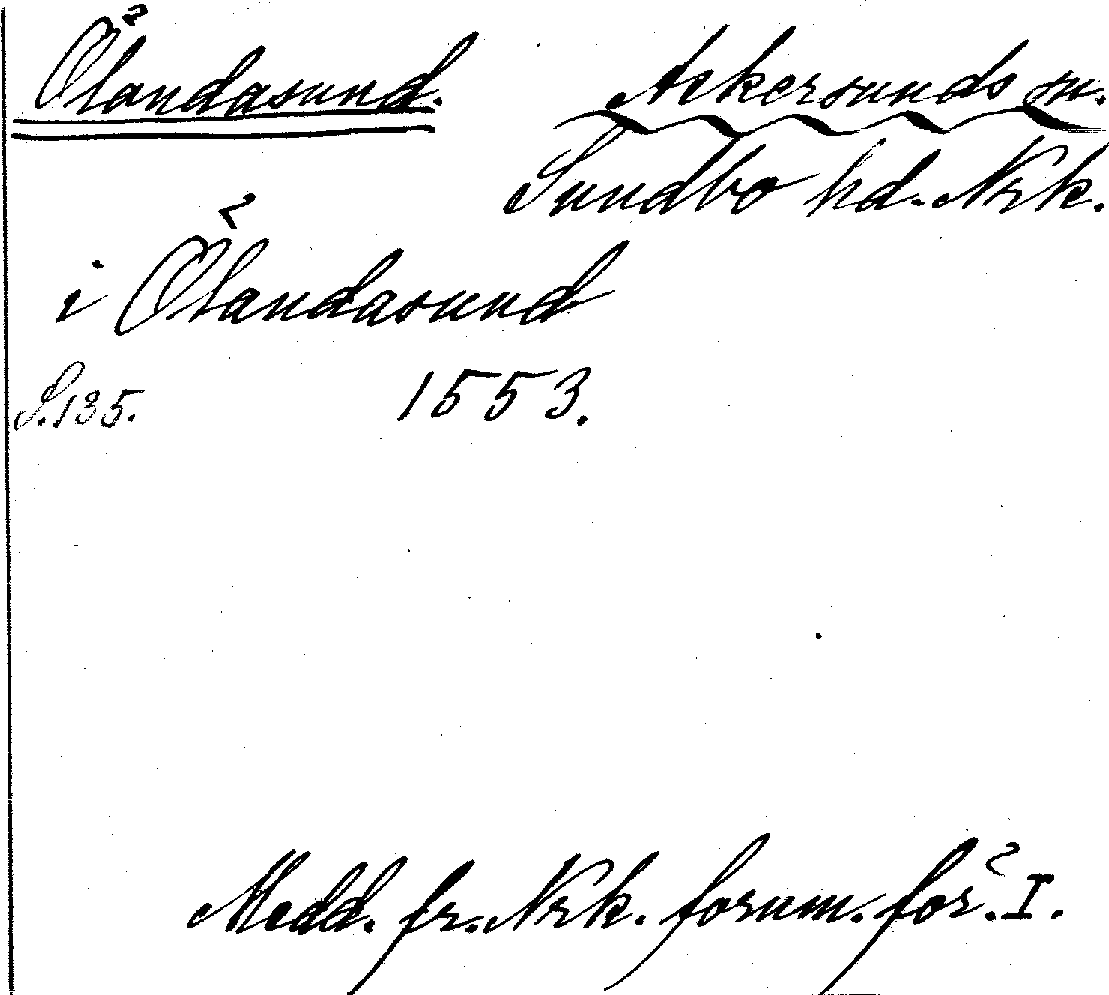 Ölandasund. Askersunds sn.
Sundbo hd. Nrk.
i Ölandasund
S. 135. 1553.
Medd. fr. Nrk. fornm. för. I.